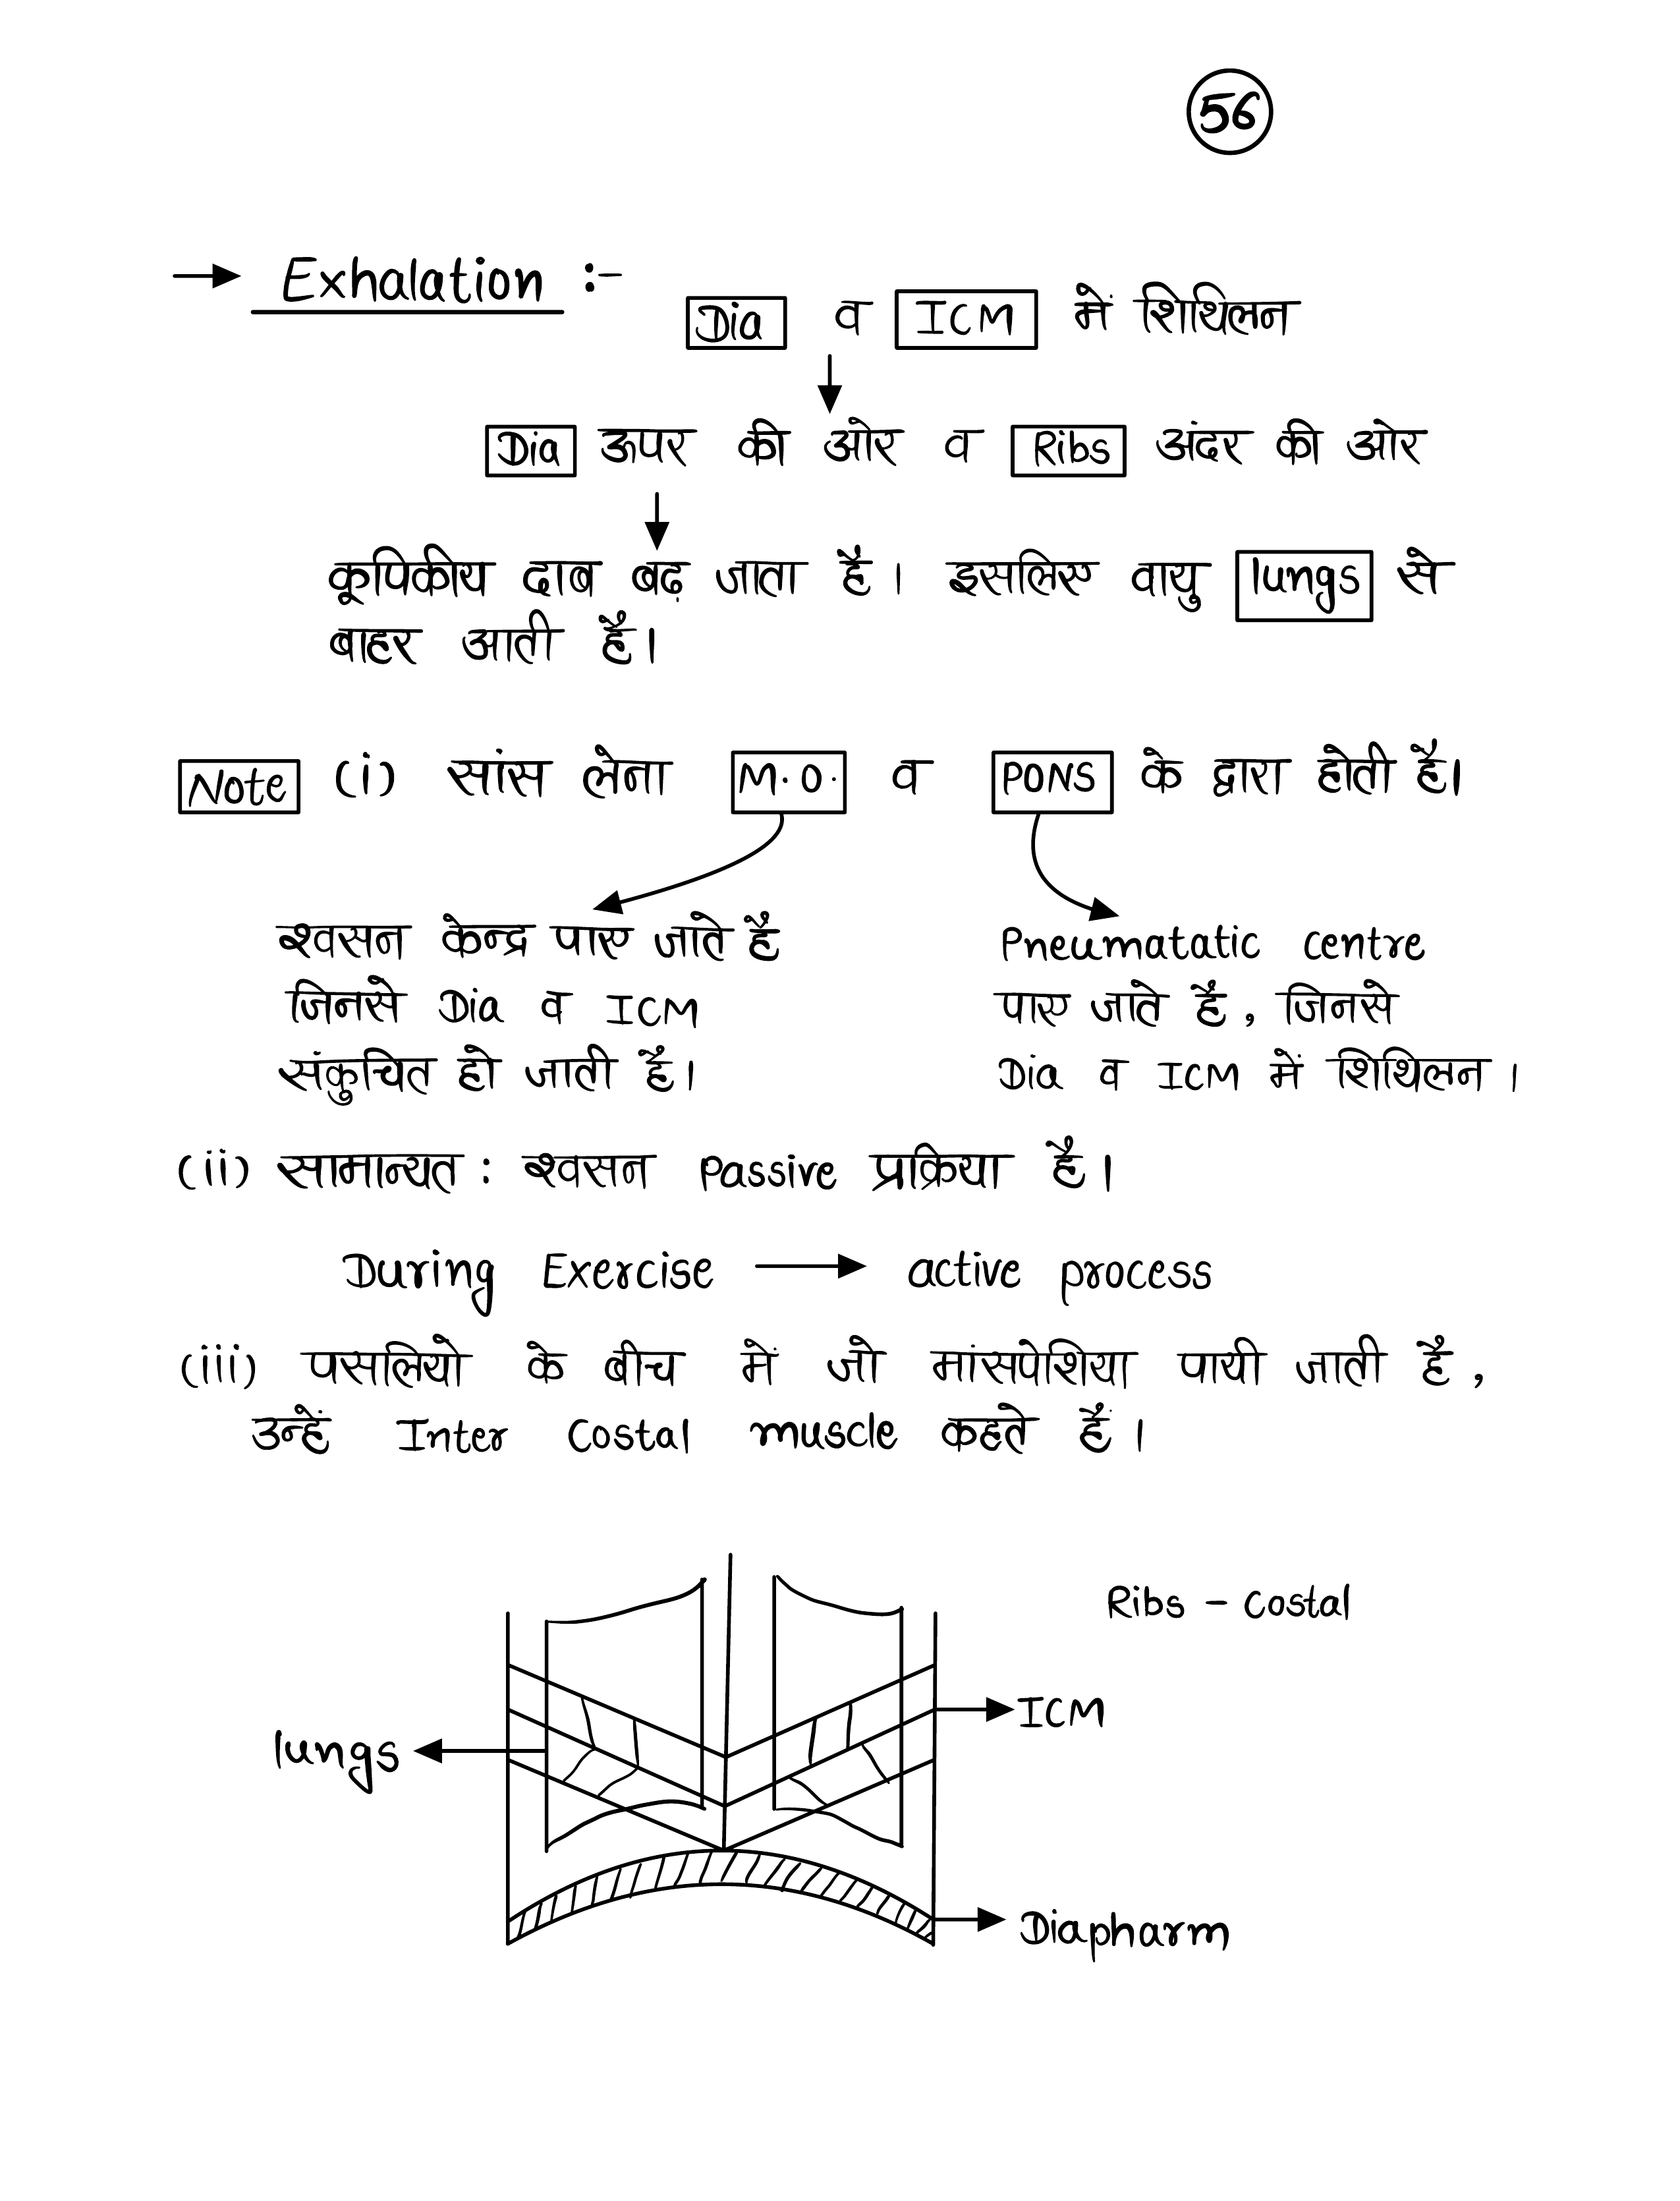 56
→ Exhalation :-
Dia व ICM में शिथिलन
↓
Dia ऊपर की ओर व Ribs अंदर की ओर
↓
कूपिकीय दाब बढ़ जाता है। इसलिए वायु lungs से
बाहर आती है।
Note (i) सांस लेना M.O. व PONS के द्वारा होती है।
श्वसन केन्द्र पाए जाते हैं
जिनसे Dia व ICM
संकुचित हो जाती है।
Pneumatatic centre
पाए जाते हैं, जिनसे
Dia व ICM में शिथिलन।
(ii) सामान्यत: श्वसन Passive प्रक्रिया है।
During Exercise → active process
(iii) पसलियो के बीच में जो मांसपेशिया पायी जाती है,
उन्हें Inter Costal muscle कहते हैं।
Ribs - Costal
ICM
lungs
Diapharm